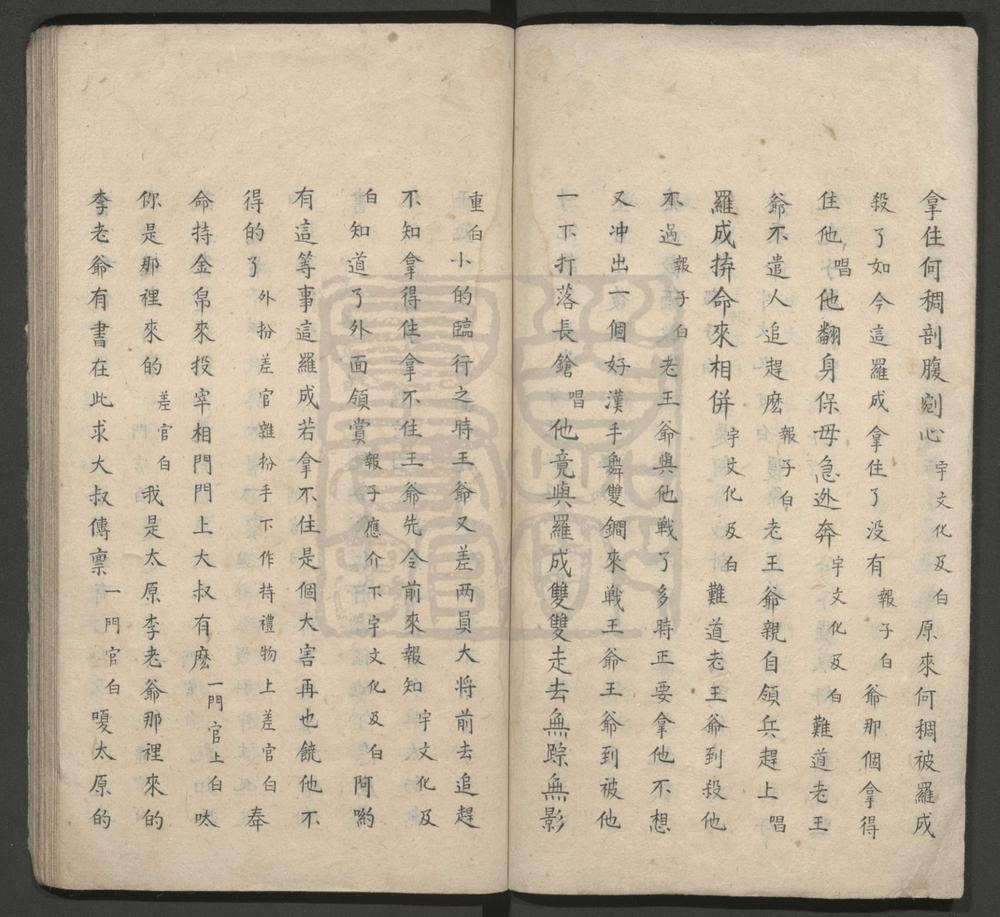 拿住何稠剖腹剜心宇文化及白原來何稠被羅成
殺了如今這羅成拿住了没有報子白爺那個拿得
住他唱他翻身保毋急迯奔宇文化及白難道老王
爺不遣人追趕麽報子白老王爺親自領兵趕上唱
羅成拚命來相併宇文化及白難道老王爺到殺他
不過報子白老王爺與他戰了多時正要拿他不想
又冲出一個好漢手舞雙鐧來戰王爺王爺到被他
一下打落長鎗唱他竟與羅成雙雙走去無踪無影
重白小的臨行之時王爺又差两員大将前去追趕
不知拿得住拿不住王爺先令前來報知宇文化及
白知道了外面領賞報子應介下宇文化及白阿喲
有這等事這羅成若拿不住是個大害再也饒他不
得的了外扮差官雜扮手下作持禮物上差官白奉
命持金帛來投宰相門門上大叔有麽一門官上白呔
你是那裡來的差官白我是太原李老爺那裡來的
李老爺有書在此求大叔傳禀一門官白嗄太原的